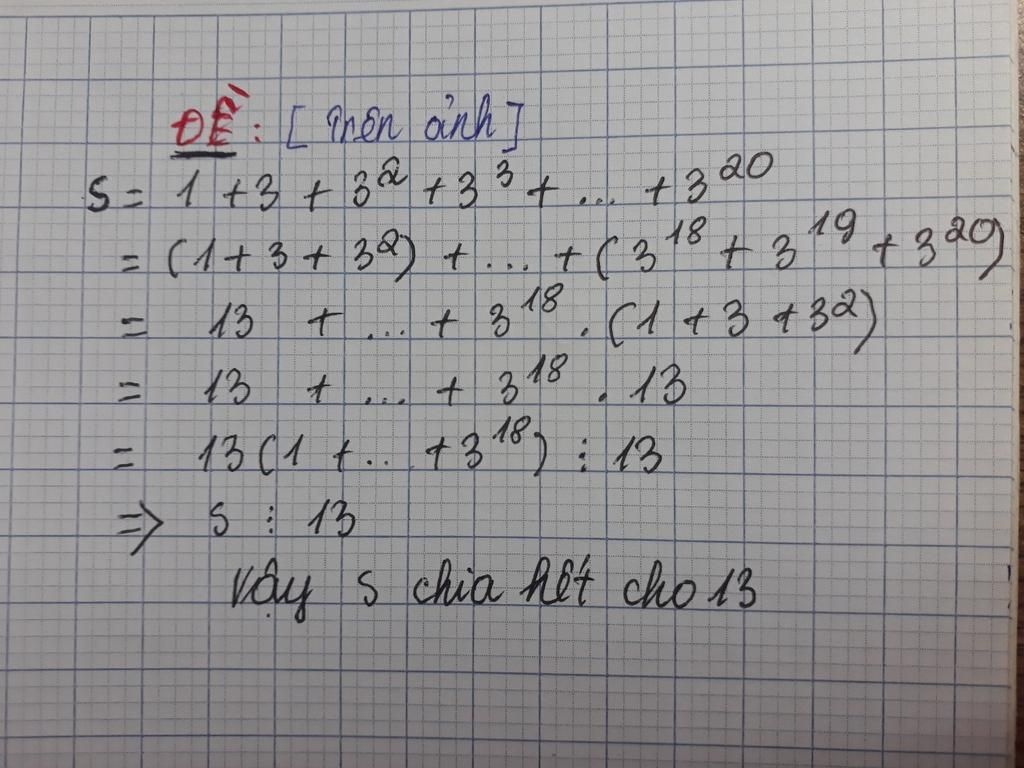 ĐỀ: [Trên ảnh]
S = 1 + 3 + 3² + 3³ + ... + 3²⁰
= (1 + 3 + 3²) + ... + (3¹⁸ + 3¹⁹ + 3²⁰)
= 13 + ... + 3¹⁸ . (1 + 3 + 3²)
= 13 + ... + 3¹⁸ . 13
= 13(1 + ... + 3¹⁸) ⋮ 13
=> S ⋮ 13
Vậy S chia hết cho 13